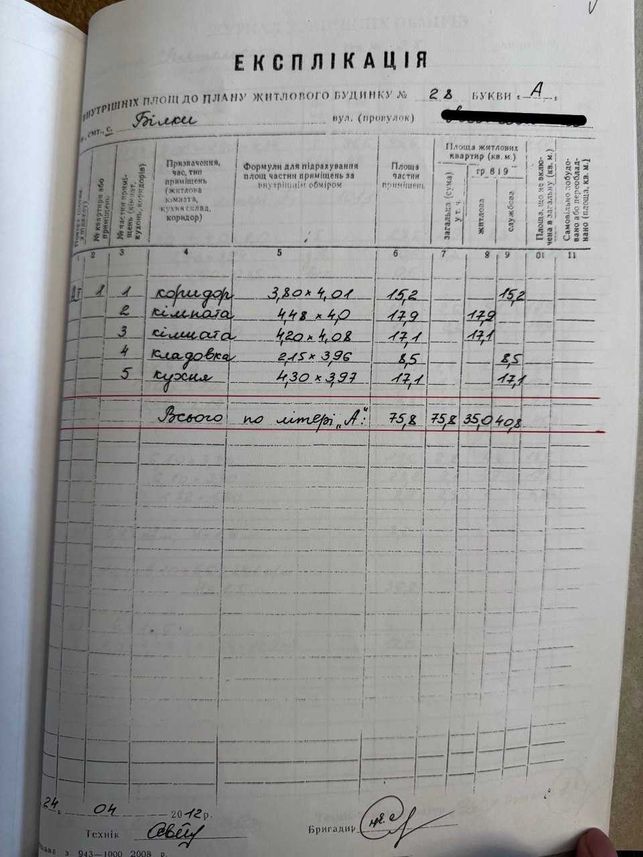 ЕКСПЛІКАЦІЯ
ВНУТРІШНІХ ПЛОЩ ДО ПЛАНУ ЖИТЛОВОГО БУДИНКУ № 28 БУКВИ „А"
смт., с. Білки вул. (провулок)
№ квартири або приміщень
№ частин приміщень (кімнат, кухонь, коридорів)
Призначення, час, тип приміщень (житлова кімната, кухня склад, коридор)
Формули для підрахування площ частин приміщень за внутрішнім обміром
Площа частин приміщень
Площа житлових квартир (кв. м.)
загальна (сума)
у т. ч.
гр. 8 і 9
житлова
службова
Площа, що не включена в загальну (кв. м.
Самовільно збудовано або переобладнано (площа, кв. м.)
1 2 3 4 5 6 7 8 9 01 11
1 1 коридор 3,80 × 4,01 15,2 15,2
2 кімната 4,48 × 4,0 17,9 17,9
3 кімната 4,20 × 4,08 17,1 17,1
4 кладовка 2,15 × 3,96 8,5 8,5
5 кухня 4,30 × 3,97 17,1 17,1
Всього по літері „А": 75,8 75,8 35,0 40,8
24 04 2012 р.
Технік Бригадир
з 943—1000 2008 р.